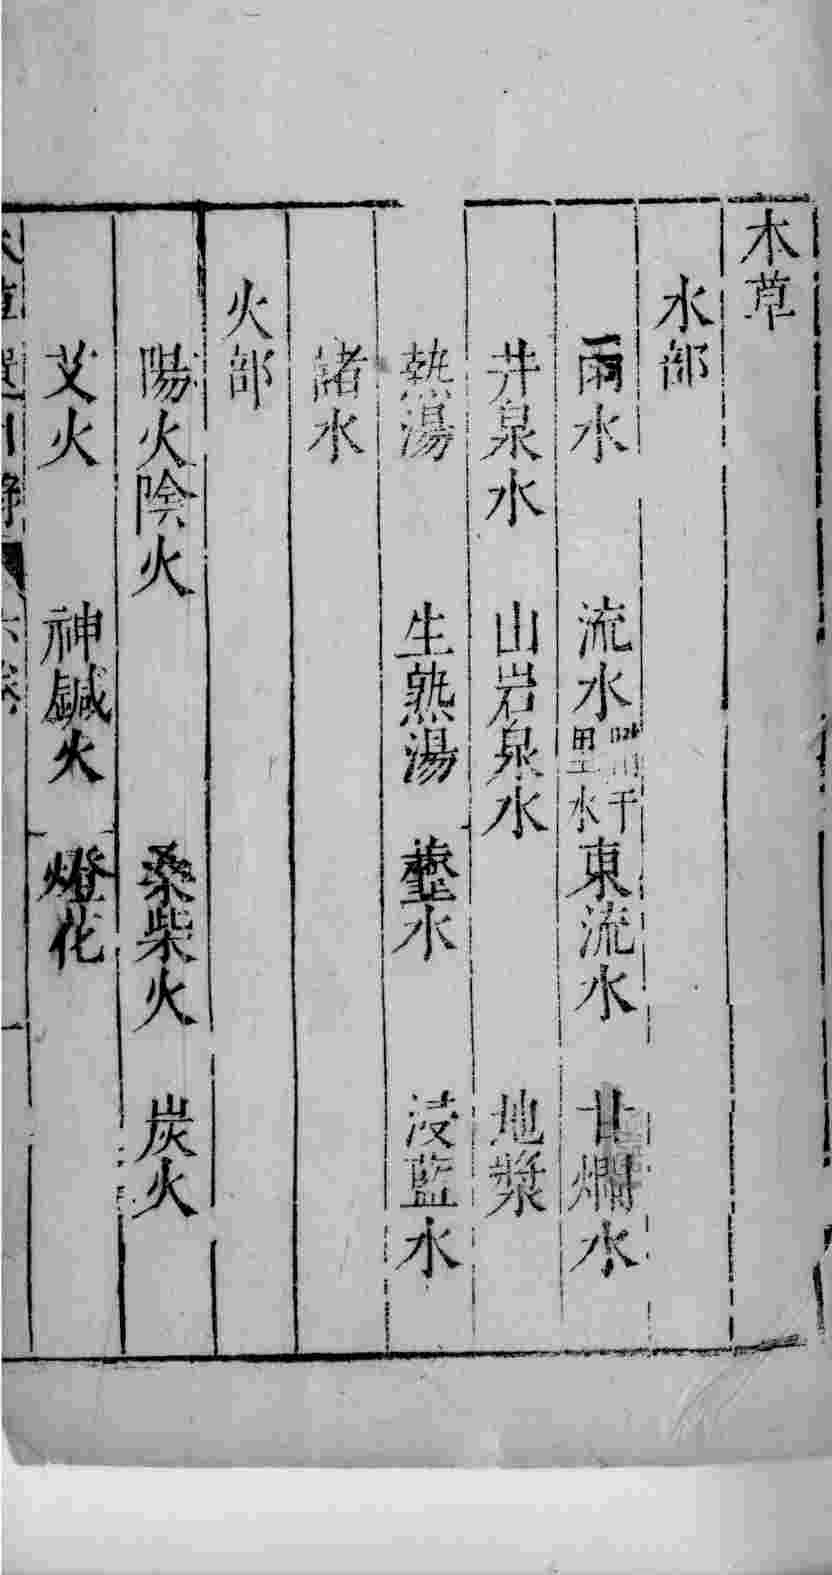 本草
水部
雨水 流水 千里水 東流水 甘爛水
井泉水 山岩泉水 地漿
熱湯 生熟湯 虀水 浸藍水
諸水
火部
陽火陰火 桑柴火 炭火
艾火 神鍼火 燈花